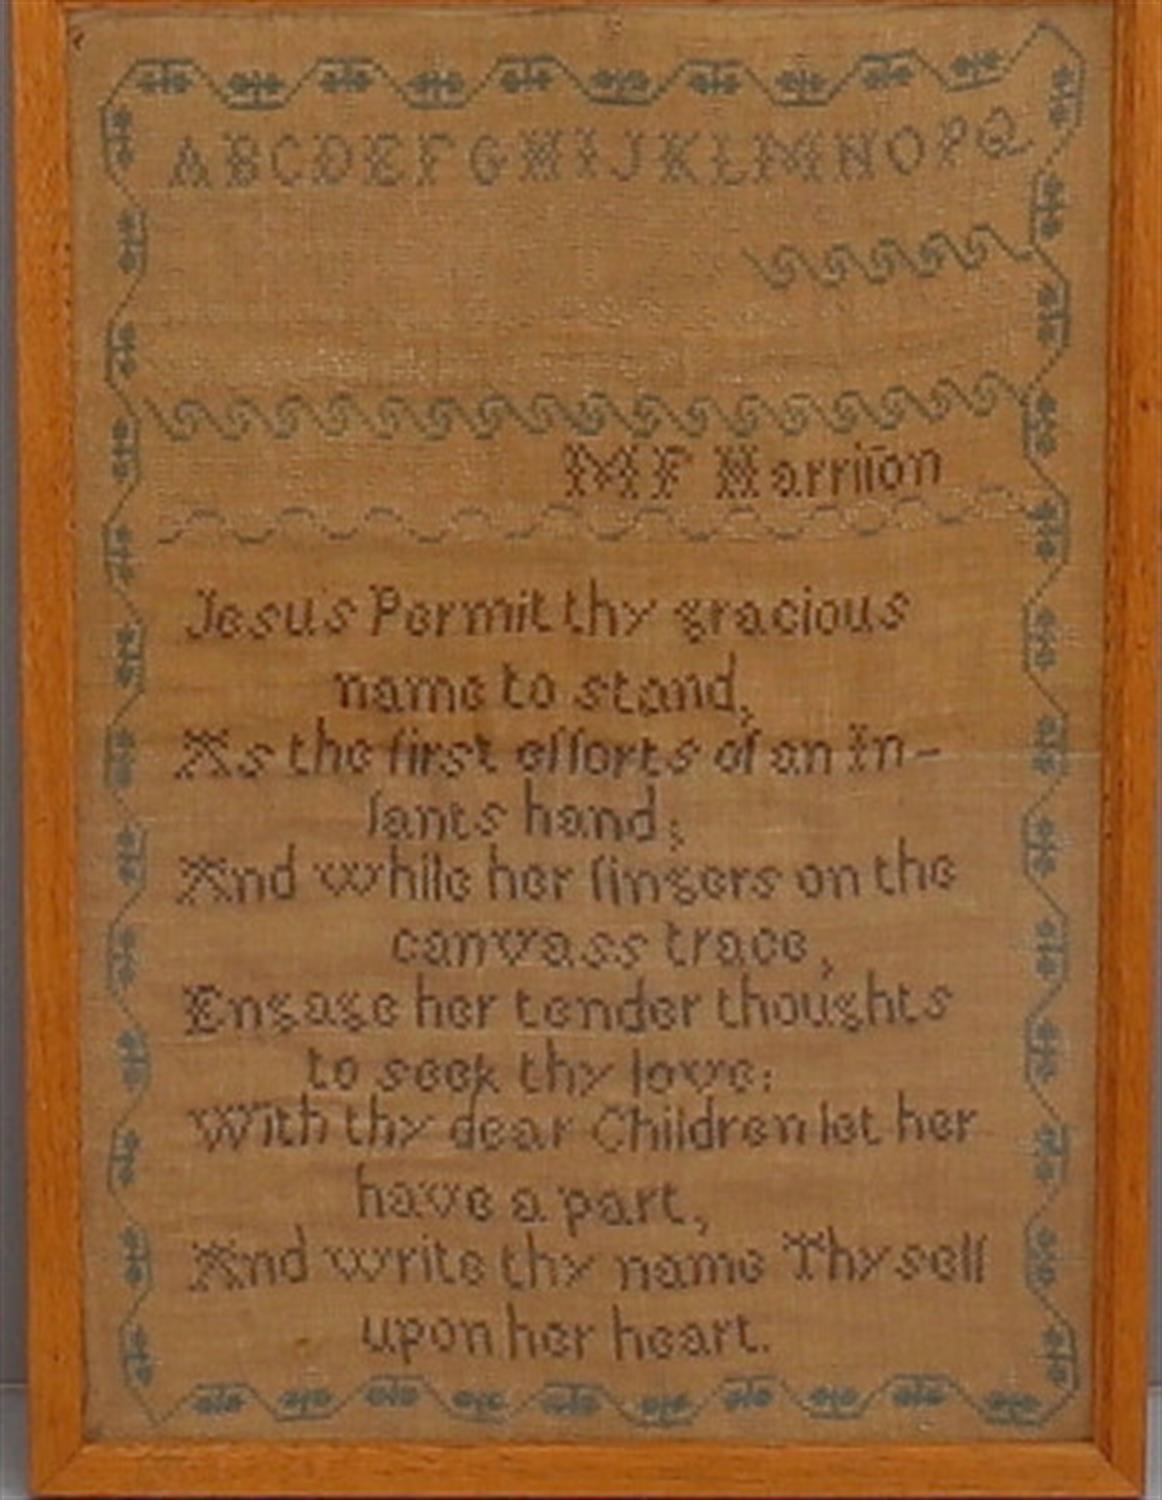 ABCDEFGHIJKLMNOPQ
MF Harriſon
Jesus Permit thy gracious
name to stand,
As the first efforts of an In-
fants hand;
And while her fingers on the
canvass trace,
Engage her tender thoughts
to seek thy love:
With thy dear Children let her
have a part,
And write thy name Thyself
upon her heart.